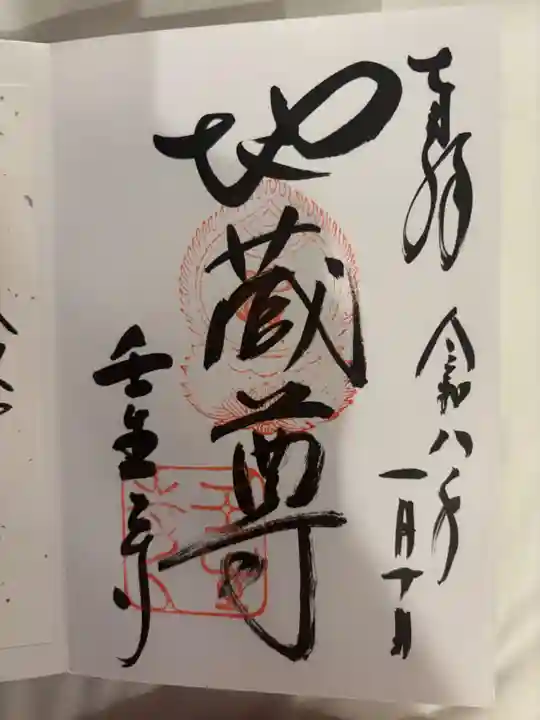 奉拝 令和八年
一月十日
地蔵尊
壬生寺